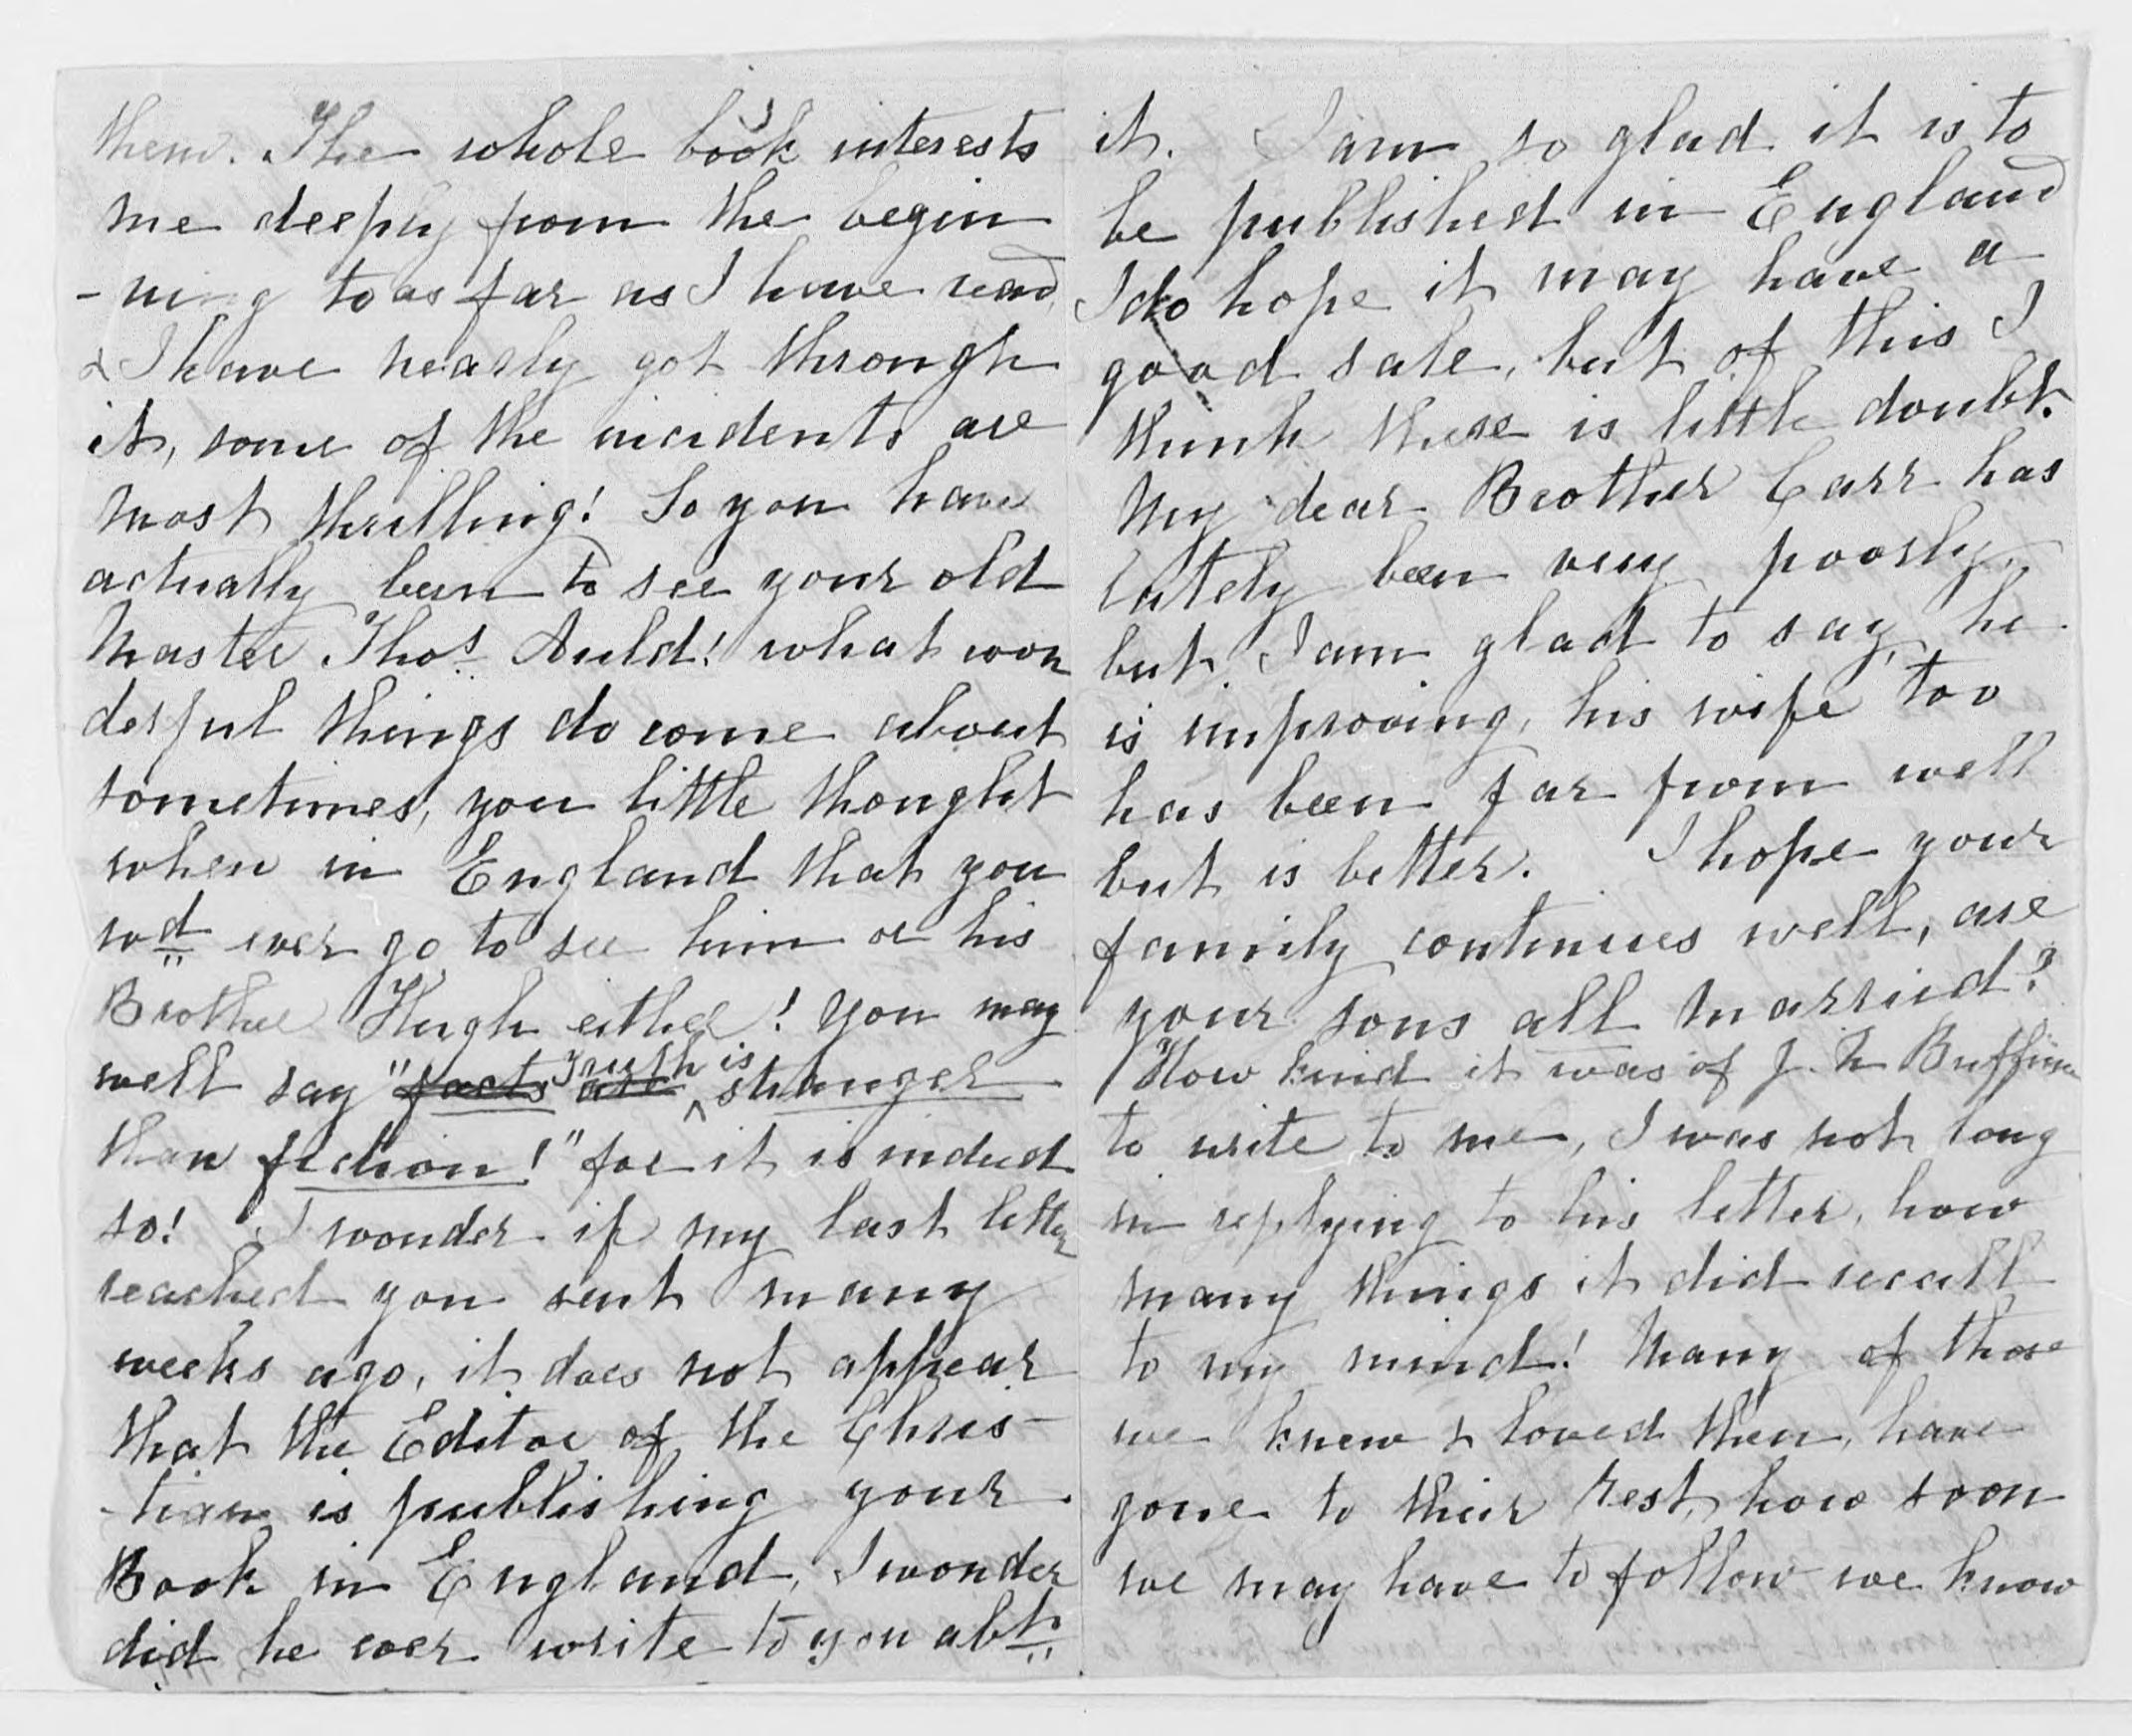 them. The whole book interests
me deeply from the begin
-ning to as far as I have read
& I have nearly got through
it, some of the incidents are
most thrilling! So you have
actually been to see your old
Master Thos. Auld! what won
derful things do come about
sometimes, you little thought
when in England that you
wd ever go to see him or his
Brother Hugh either! You may
well say "facts are Truth is stranger
than fiction!" for it is indeed
so! I wonder if my last letter
reached you sent many
weeks ago, it does not appear
that the Editor of the Chris-
-tian is publishing your
Book in England, I wonder
did he ever write to you abt.
it. I am so glad it is to
be published in England
I do hope it may have a
good sale, but of this I
think there is little doubt.
My dear Brother Carr has
lately been very poorly,
but I am glad to say, he
is improving, his wife too
has been far from well
but is better. I hope your
family continues well, are
your sons all married?
How kind it was of J. N Buffum
to write to me, I was not long
in replying to his letter, how
many things it did recall
to my mind! Many of those
we knew & loved then, have
gone to their rest, how soon
we may have to follow we know